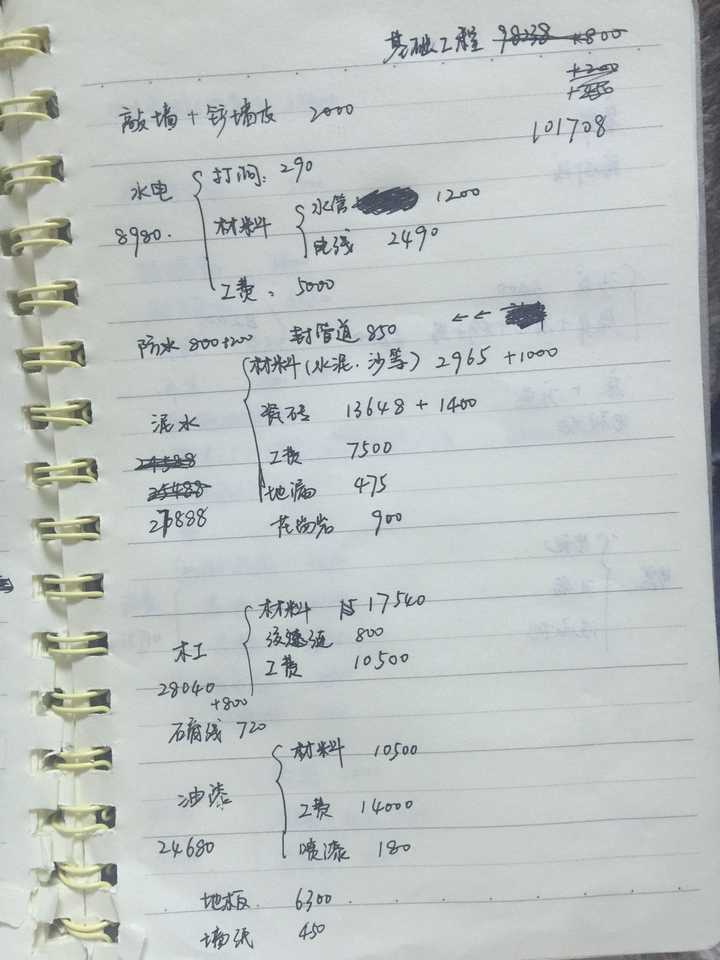 基础工程 98238 +800
+200
+450
101708
敲墙+铲墙皮 2000
水电 打洞: 290
8980. 材料 水管 1200
电线 2490
工费: 5000
防水 800+200 封管道 850 ←←
材料(水泥.沙等) 2965 +1000
瓷砖 13648 + 1400
泥水
24588 工费 7500
25488 地漏 475
26888 花岗岩 900
材料 17540
800
木工 工费 10500
28040 +800
石膏线 720
材料 10500
油漆 工费 14000
24680 喷漆 180
地板 6300
墙纸 450